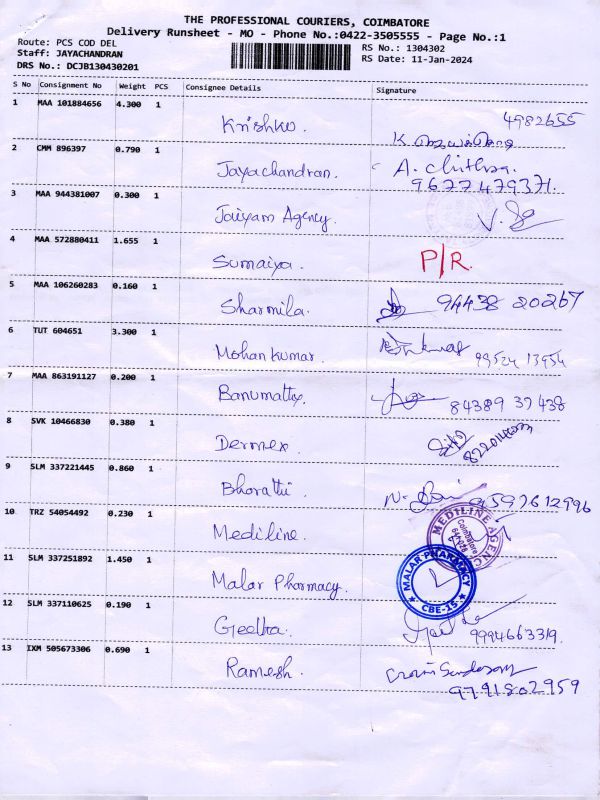 THE PROFESSIONAL COURIERS, COIMBATORE
Delivery Runsheet - MO - Phone No.:0422-3505555 - Page No.:1
Route: PCS COD DEL
Staff: JAYACHANDRAN
DRS No.: DCJB130430201
RS No.: 1304302
RS Date: 11-Jan-2024
S No Consignment No Weight PCS Consignee Details Signature
1 MAA 101884656 4.300 1 Krishko. 4982655
K.
2 CMM 896397 0.790 1 Jayachandran. A. Chithra.
9677479371.
3 MAA 944381007 0.300 1 Jaiyam Agency.
4 MAA 572880411 1.655 1 Sumaiya. P/R.
5 MAA 106260283 0.160 1 Sharmila. 94438 20267
6 TUT 604651 3.300 1 Mohan kumar. 99524 13954
7 MAA 863191127 0.200 1 Banumathy. 84389 37438
8 SVK 10466830 0.380 1 Dermex.
9 SLM 337221445 0.860 1 Bharathi. 9597612996
10 TRZ 54054492 0.230 1 Mediline. MEDILINE AGENC
Coimbatore
11 SLM 337251892 1.450 1 Malar Pharmacy. MALAR PHARMACY
CBE-15
12 SLM 337110625 0.190 1 Geetha. 9994663319.
13 IXM 505673306 0.690 1 Ramesh.
9791802959